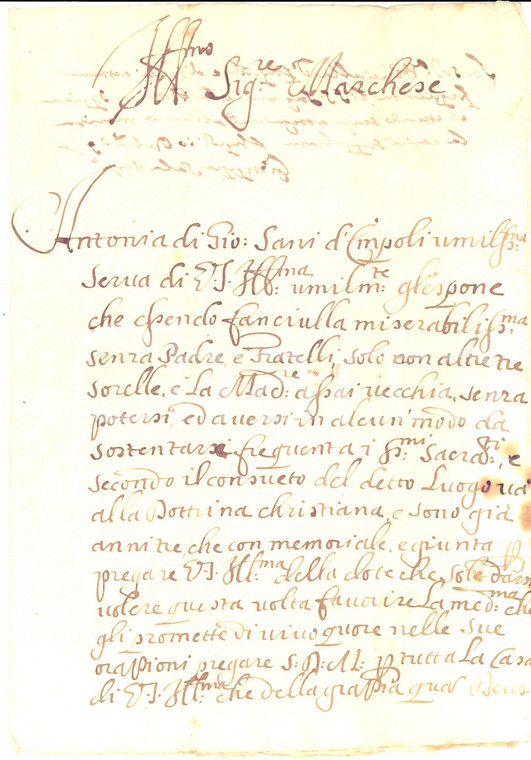 Ill.mo Sig.re Marchese
Antonia di Gio: Sani d'Empoli umiliss:ma
serva di V.S. Ill:ma umilm:te gl'espone
che essendo fanciulla miserabiliss:ma
senza Padre, e Fratelli, solo con altre tre
sorelle, e la Mad:re assai vecchia, senza
potersi, ed aversi in alcun' modo da
sostentarsi frequenta i SS:mi Sacra:ti, e
secondo il consueto del detto Luogo và
alla Dottrina christiana, e sono già
anni tre, che con memoriale, è giunta p
pregare V.S. Ill:ma della dote che sole dare
volere questa volta favorire la med:ma che
gli promette di vivo quore nelle sue
orazioni pregare S: D: M: p tutta la Casa
di V.S. Ill:ma che della grazia quas Deus